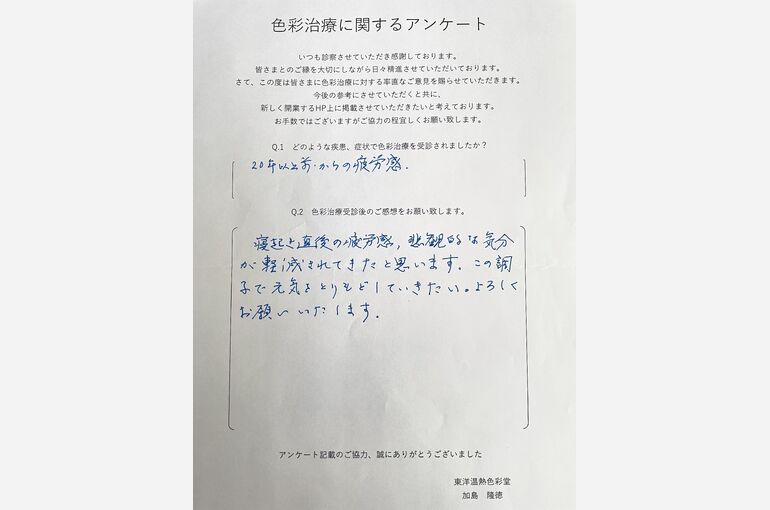 色彩治療に関するアンケート
いつも診察させていただき感謝しております。
皆さまとのご縁を大切にしながら日々精進させていただいております。
さて、この度は皆さまに色彩治療に対する率直なご意見を賜らせていただきます。
今後の参考にさせていただくと共に、
新しく開業するHP上に掲載させていただきたいと考えております。
お手数ではございますがご協力の程宜しくお願い致します。
Q.1 どのような疾患、症状で色彩治療を受診されましたか？
20年以上前からの疲労感.
Q.2 色彩治療受診後のご感想をお願い致します。
寝起き直後の疲労感, 悲観的な気分
が軽減されてきたと思います. この調
子で元気をとりもどしていきたい。よろしく
お願いいたします.
アンケート記載のご協力、誠にありがとうございました
東洋温熱色彩堂
加島 隆徳